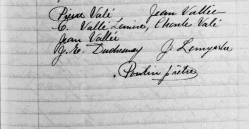 Pierre Valé Jean Vallée
C. Vallé Lemire, Charles Valé
Jean Vallée
J. E. Duchesnay J.
Poulin ptre